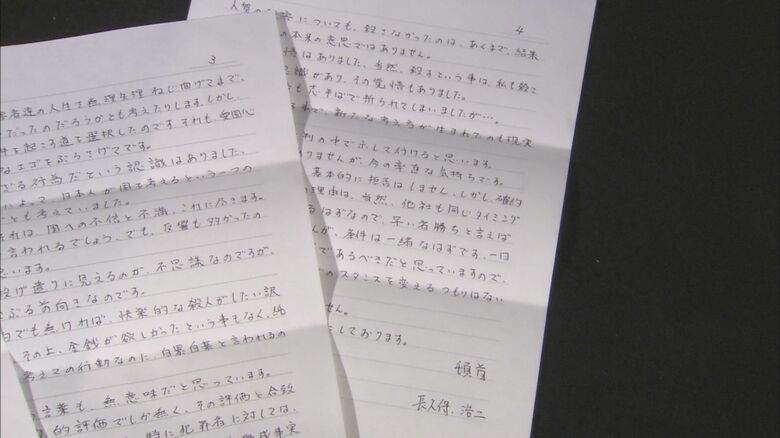 3
害者達の人生を無理矢理ねじ曲げてまで、
だったのだろうかとも考えたりします。しかし、
件を起こす道を選択したのです。それも、愛国心
なエゴをぶらさげてです。
ざる行為だという認識はありました。
によって、日本人が国を考えるという一つの
とも考えていました。
それは、国への不信と不満、これに尽きます。
言われるでしょう、でも、反響も多かったの
思います。
投げ遣りに見えるのが、不思議なのですが、
ぶる前向きなのです。
白でも無ければ、快楽的な殺人がしたい訳
その上、金銭が欲しかったという事もなく、純
考えての行動なのに、自暴自棄と言われるの
言葉も、無意味だと思っています。
的評価でしか無く、その評価と合致
時に犯罪者に対しては、
4
人質の についても、殺さなかったのは、あくまで、結果
の本来の意思ではありません。
悟はありました、当然、殺すという事は、私も殺さ
識があり、その覚悟もありました。
も志半ばで折られてしまいましたが…。
で、新たな考え方が生まれたのも現実
判の中でホレス付けると思います。
りませんが、今の率直な気持ちです。
基本的に拒否はしません。しかし、確約
理由は、当然、他社も同じタイミング
るはずなので、早い者勝ちと言えば
んが、条件は一緒なはずです。一日
であるべきだと思っていますので、
のスタンスを変えるつもりはない
せん。
しております。
頓首
長久保 浩二